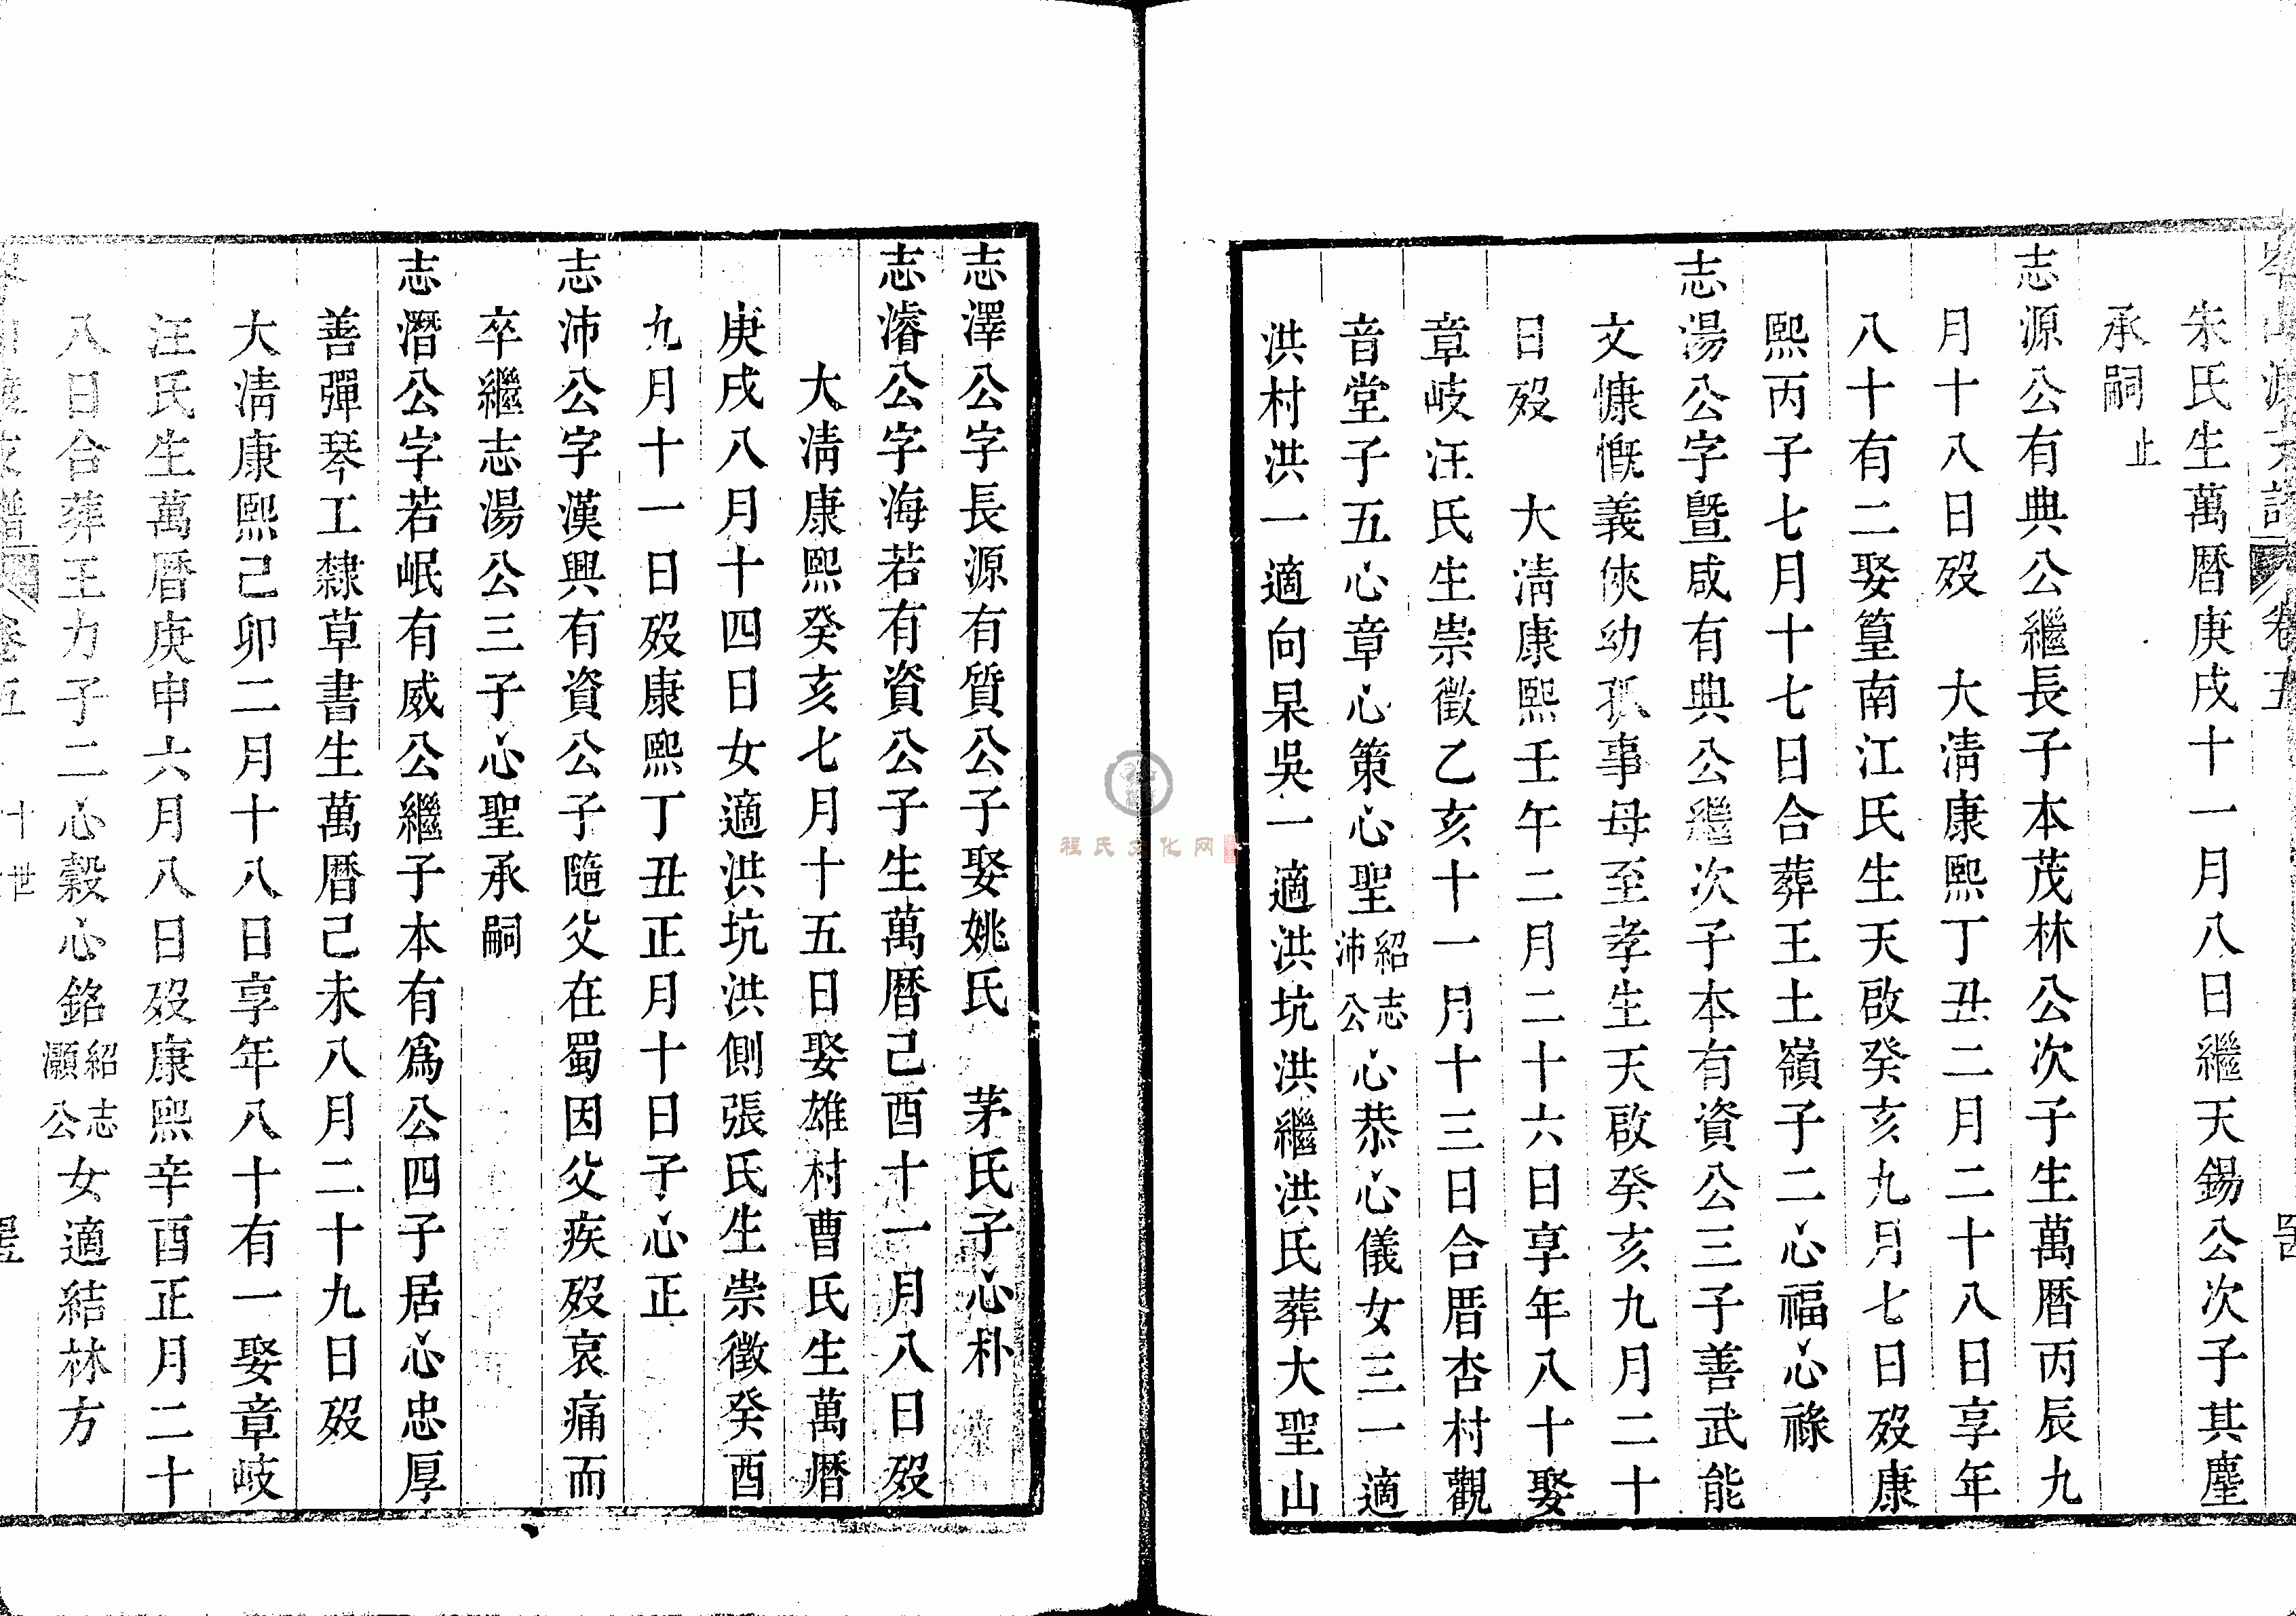 朱氏生萬曆庚戌十一月八日繼天錫公次子其塵
承嗣止
志源公有典公繼長子本茂林公次子生萬曆丙辰九
月十八日歿 大清康熙丁丑二月二十八日享年
八十有二娶篁南江氏生天啟癸亥九月七日歿康
熙丙子七月十七日合葬王土嶺子二心福心祿
志湯公字暨咸有典公繼次子本有資公三子善武能
文慷慨義俠幼孤事母至孝生天啟癸亥九月二十
日歿 大清康熙壬午二月二十六日享年八十娶
章岐汪氏生崇徵乙亥十一月十三日合厝杏村觀
音堂子五心章心策心聖紹志沛公心恭心儀女三一適
洪村洪一適向杲吳一適洪坑洪繼洪氏葬大聖山
志澤公字長源有質公子娶姚氏 茅氏子心朴
志濬公字海若有資公子生萬曆己酉十一月八日歿
大清康熙癸亥七月十五日娶雄村曹氏生萬曆
庚戌八月十四日女適洪坑洪側張氏生崇徵癸酉
九月十一日歿康熙丁丑正月十日子心正
志沛公字漢興有資公子隨父在蜀因父疾歿哀痛而
卒繼志湯公三子心聖承嗣
志潛公字若岷有威公繼子本有為公四子居心忠厚
善彈琴工隸草書生萬曆己未八月二十九日歿
大清康熙己卯二月十八日享年八十有一娶章岐
汪氏生萬曆庚申六月八日歿康熙辛酉正月二十
八日合葬王力子二心穀心銘紹志灝公女適結林方
十世
程氏文化网